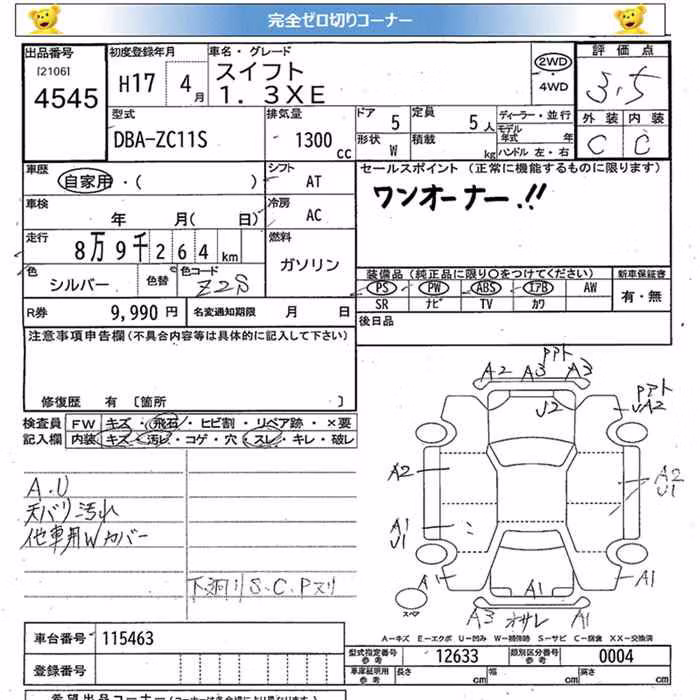 完全ゼロ切りコーナー
出品番号 初度登録年月 車名・グレード 評価点
[2106] 4545 H17 4月 スイフト 1.3XE 2WD 4WD 3.5
型式 排気量 ドア 定員 ディーラー・並行 外装 内装
DBA-ZC11S 1300cc 5 5人 モデル年式 年 C C
形状 W 積載 kg ハンドル 左・右
車歴 シフト セールスポイント (正常に機能するものに限ります)
自家用・( ) AT ワンオーナー!!
車検 冷房
年 月( 日) AC
走行 燃料
8万9千264km ガソリン
色 色替 色コード 装備品(純正品に限り○をつけてください) 新車保証書
シルバー Z2S PS PW ABS エアB AW 有・無
SR ナビ TV カワ
R券 9,990円 名変通知期限 月 日 後日品
注意事項申告欄(不具合内容等は具体的に記入して下さい)
修復歴 有 [箇所 ]
検査員 FW キズ・飛石・ヒビ割・リペア跡・×要
記入欄 内装 キズ・汚レ・コゲ・穴・スレ・キレ・破レ
A.U
天バリ汚れ
他車用Wカバー
下廻り S.C.Pヌリ
PPト
A2 A3 A3
U2
PPト
UA2
A2
A2
U1
A1
U1
A1 A1 A1
スペア
A3 オサレ A1
A－キズ E－エクボ U－凹み W－補修跡 S－サビ C－腐食 XX－交換済
車台番号 115463
型式指定番号 参考 12633 類別区分番号 参考 0004
登録番号
車庫証明用 参考 長さ cm 幅 cm 高さ cm
希望出品コーナー